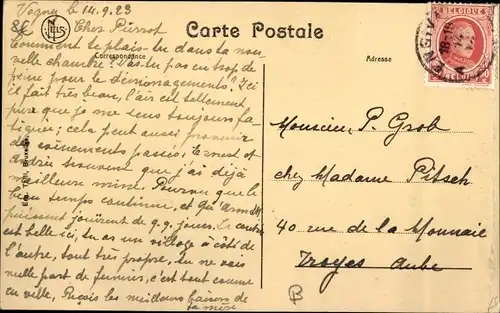 Vezin le 14.9.23
Carte Postale
Cher Pierrot
Correspondance
Adresse
Comment te plais-tu dans ta nou-
velle chambre? As-tu pas eu trop de
peine pour le déménagements? Ici
il fait très beau, l'air est tellement
pure que je me sens toujours fa-
tiguée; cela peut aussi provenir
des évènements passés, Ernest et
André trouvent que j'ai déjà
meilleure mine. Pourvu que le
beau temps continue, et qu'
puissent jouirent de q.q. jours. La contrée
est belle ici, tu as un village à côté de
l'autre, tout très propre, tu ne vois
nulle part de fumier, c'est tout comme
en ville, Reçois les meilleurs baisers de
ta mère
Monsieur P. Grob
chez Madame Pitsch
40 rue de la Monnaie
Troyes Aube
BELGIQUE
BELGIË
NELS